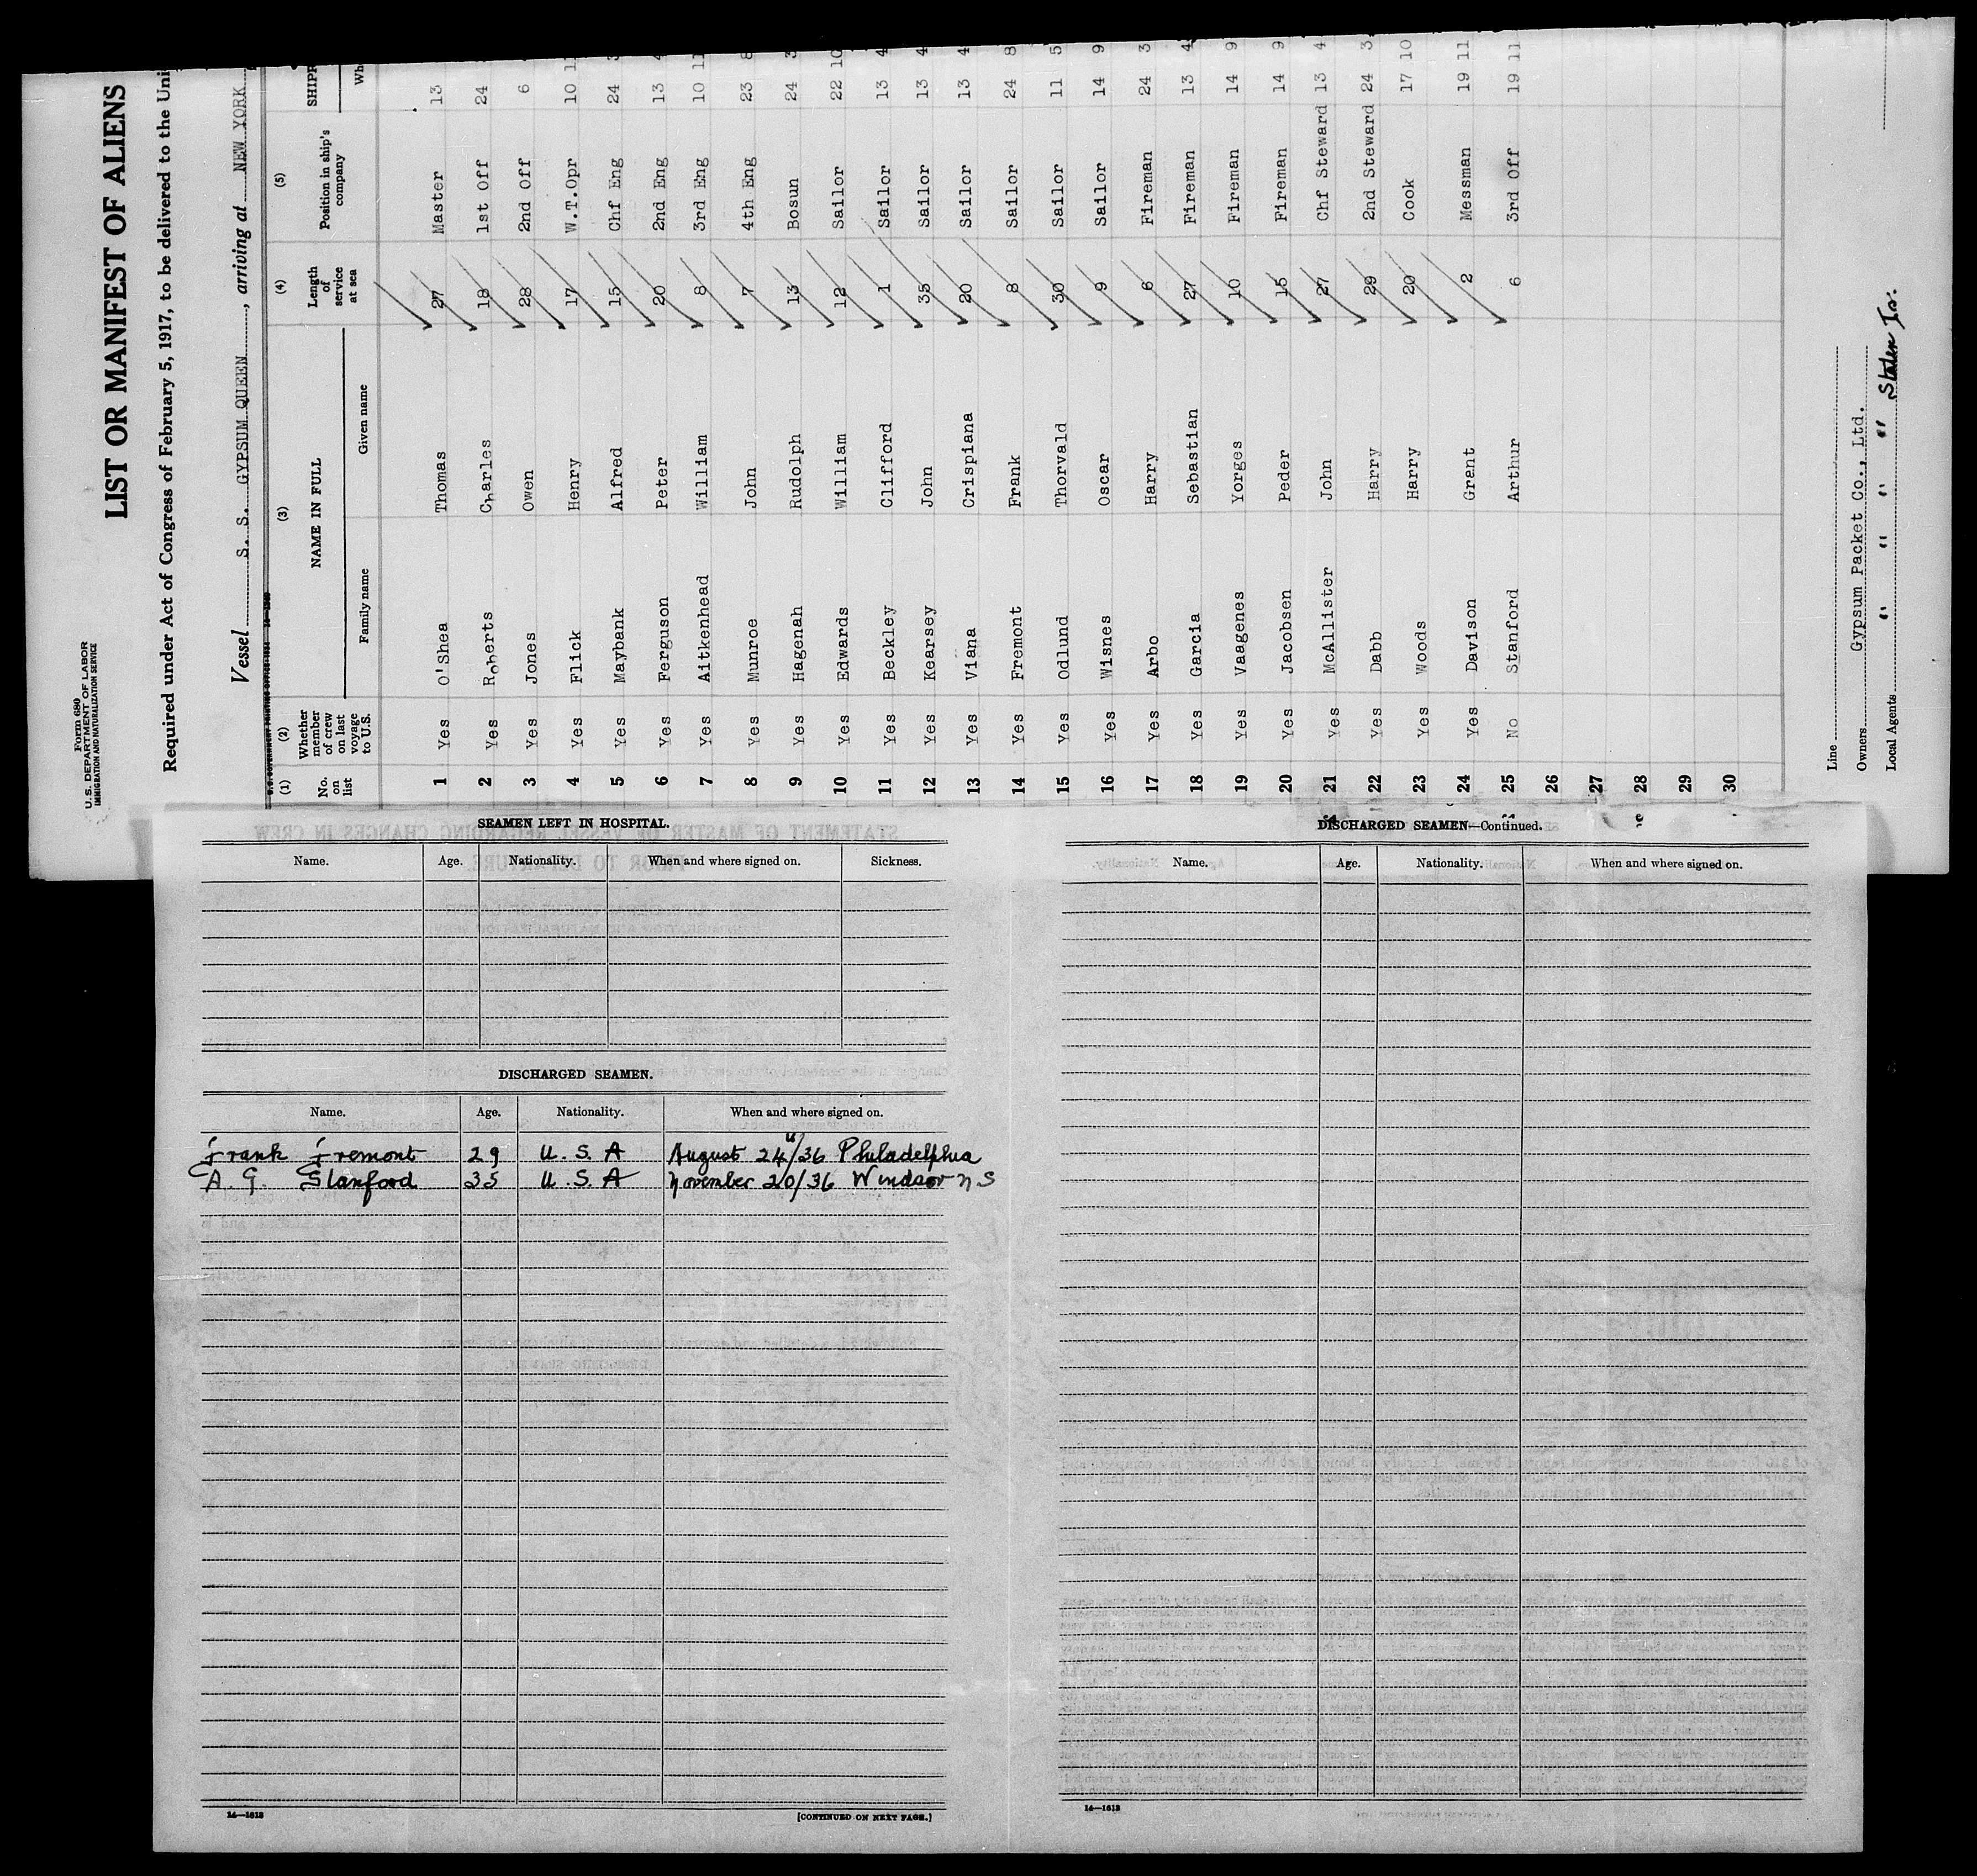 Form 680
U. S. DEPARTMENT OF LABOR
IMMIGRATION AND NATURALIZATION SERVICE
LIST OR MANIFEST OF ALIENS
Required under Act of Congress of February 5, 1917, to be delivered to the
Vessel S. S. GYPSUM QUEEN, arriving at NEW YORK
(1) (2) (3) (4) (5)
No. on list Whether member of crew on last voyage to U.S. NAME IN FULL Family name Given name Length of service at sea Position in ship's company
1 Yes O'Shea Thomas 27 Master 13
2 Yes Roberts Charles 18 1st Off 24
3 Yes Jones Owen 28 2nd Off 6
4 Yes Flick Henry 17 W.T.Opr 10
5 Yes Maybank Alfred 15 Chf Eng 24
6 Yes Ferguson Peter 20 2nd Eng 13
7 Yes Aitkenhead William 8 3rd Eng 10
8 Yes Munroe John 7 4th Eng 23
9 Yes Hagenah Rudolph 13 Bosun 24
10 Yes Edwards William 12 Sailor 22 10
11 Yes Beckley Clifford 1 Sailor 13 4
12 Yes Kearsey John 35 Sailor 13 4
13 Yes Viana Crispiana 20 Sailor 13 4
14 Yes Fremont Frank 8 Sailor 24 8
15 Yes Odlund Thorvald 30 Sailor 11 5
16 Yes Wisnes Oscar 9 Sailor 14 9
17 Yes Arbo Harry 6 Fireman 24 3
18 Yes Garcia Sebastian 27 Fireman 13 4
19 Yes Vaagenes Yorges 10 Fireman 14 9
20 Yes Jacobsen Peder 15 Fireman 14 9
21 Yes McAllister John 27 Chf Steward 13 4
22 Yes Dabb Harry 29 2nd Steward 24 3
23 Yes Woods Harry 20 Cook 17 10
24 Yes Davison Grent 2 Messman 19 11
25 No Stanford Arthur 6 3rd Off 19 11
26
27
28
29
30
Line
Owners Gypsum Packet Co., Ltd.
Local Agents " " " " Staten Is.
SEAMEN LEFT IN HOSPITAL.
Name. Age. Nationality. When and where signed on. Sickness.
DISCHARGED SEAMEN.
Name. Age. Nationality. When and where signed on.
Frank Fremont 29 U. S. A August 24/36 Philadelphia
A. G. Stanford 35 U. S. A November 20/36 Windsor N S
14—1613
[CONTINUED ON NEXT PAGE.]
DISCHARGED SEAMEN—Continued.
Name. Age. Nationality. When and where signed on.
14—1613